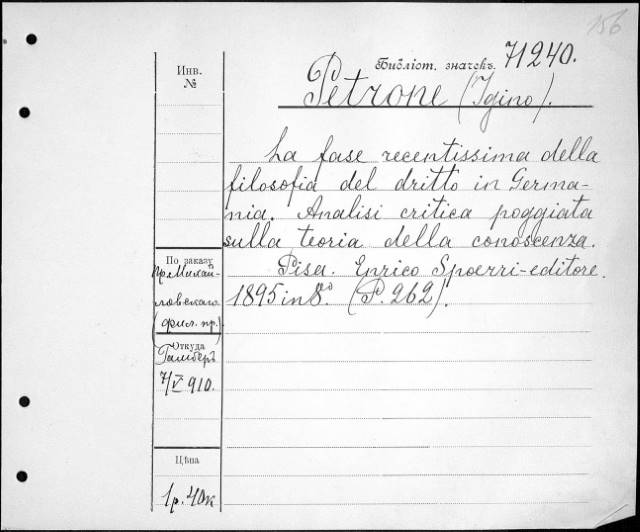 156
Библіот. значекъ 71240.
Petrone (Igino).
La fase recentissima della
filosofia del dritto in Germa-
nia. Analisi critica poggiata
sulla teoria della conoscenza.
Pisa. Enrico Spoerri-editore.
1895 in 8º. (P. 262).
Инв.
№
По заказу
пр. Михай-
ловскаго
(фил. пр.)
Откуда
Гамберъ
7/V 910.
Цѣна
1р. 40к